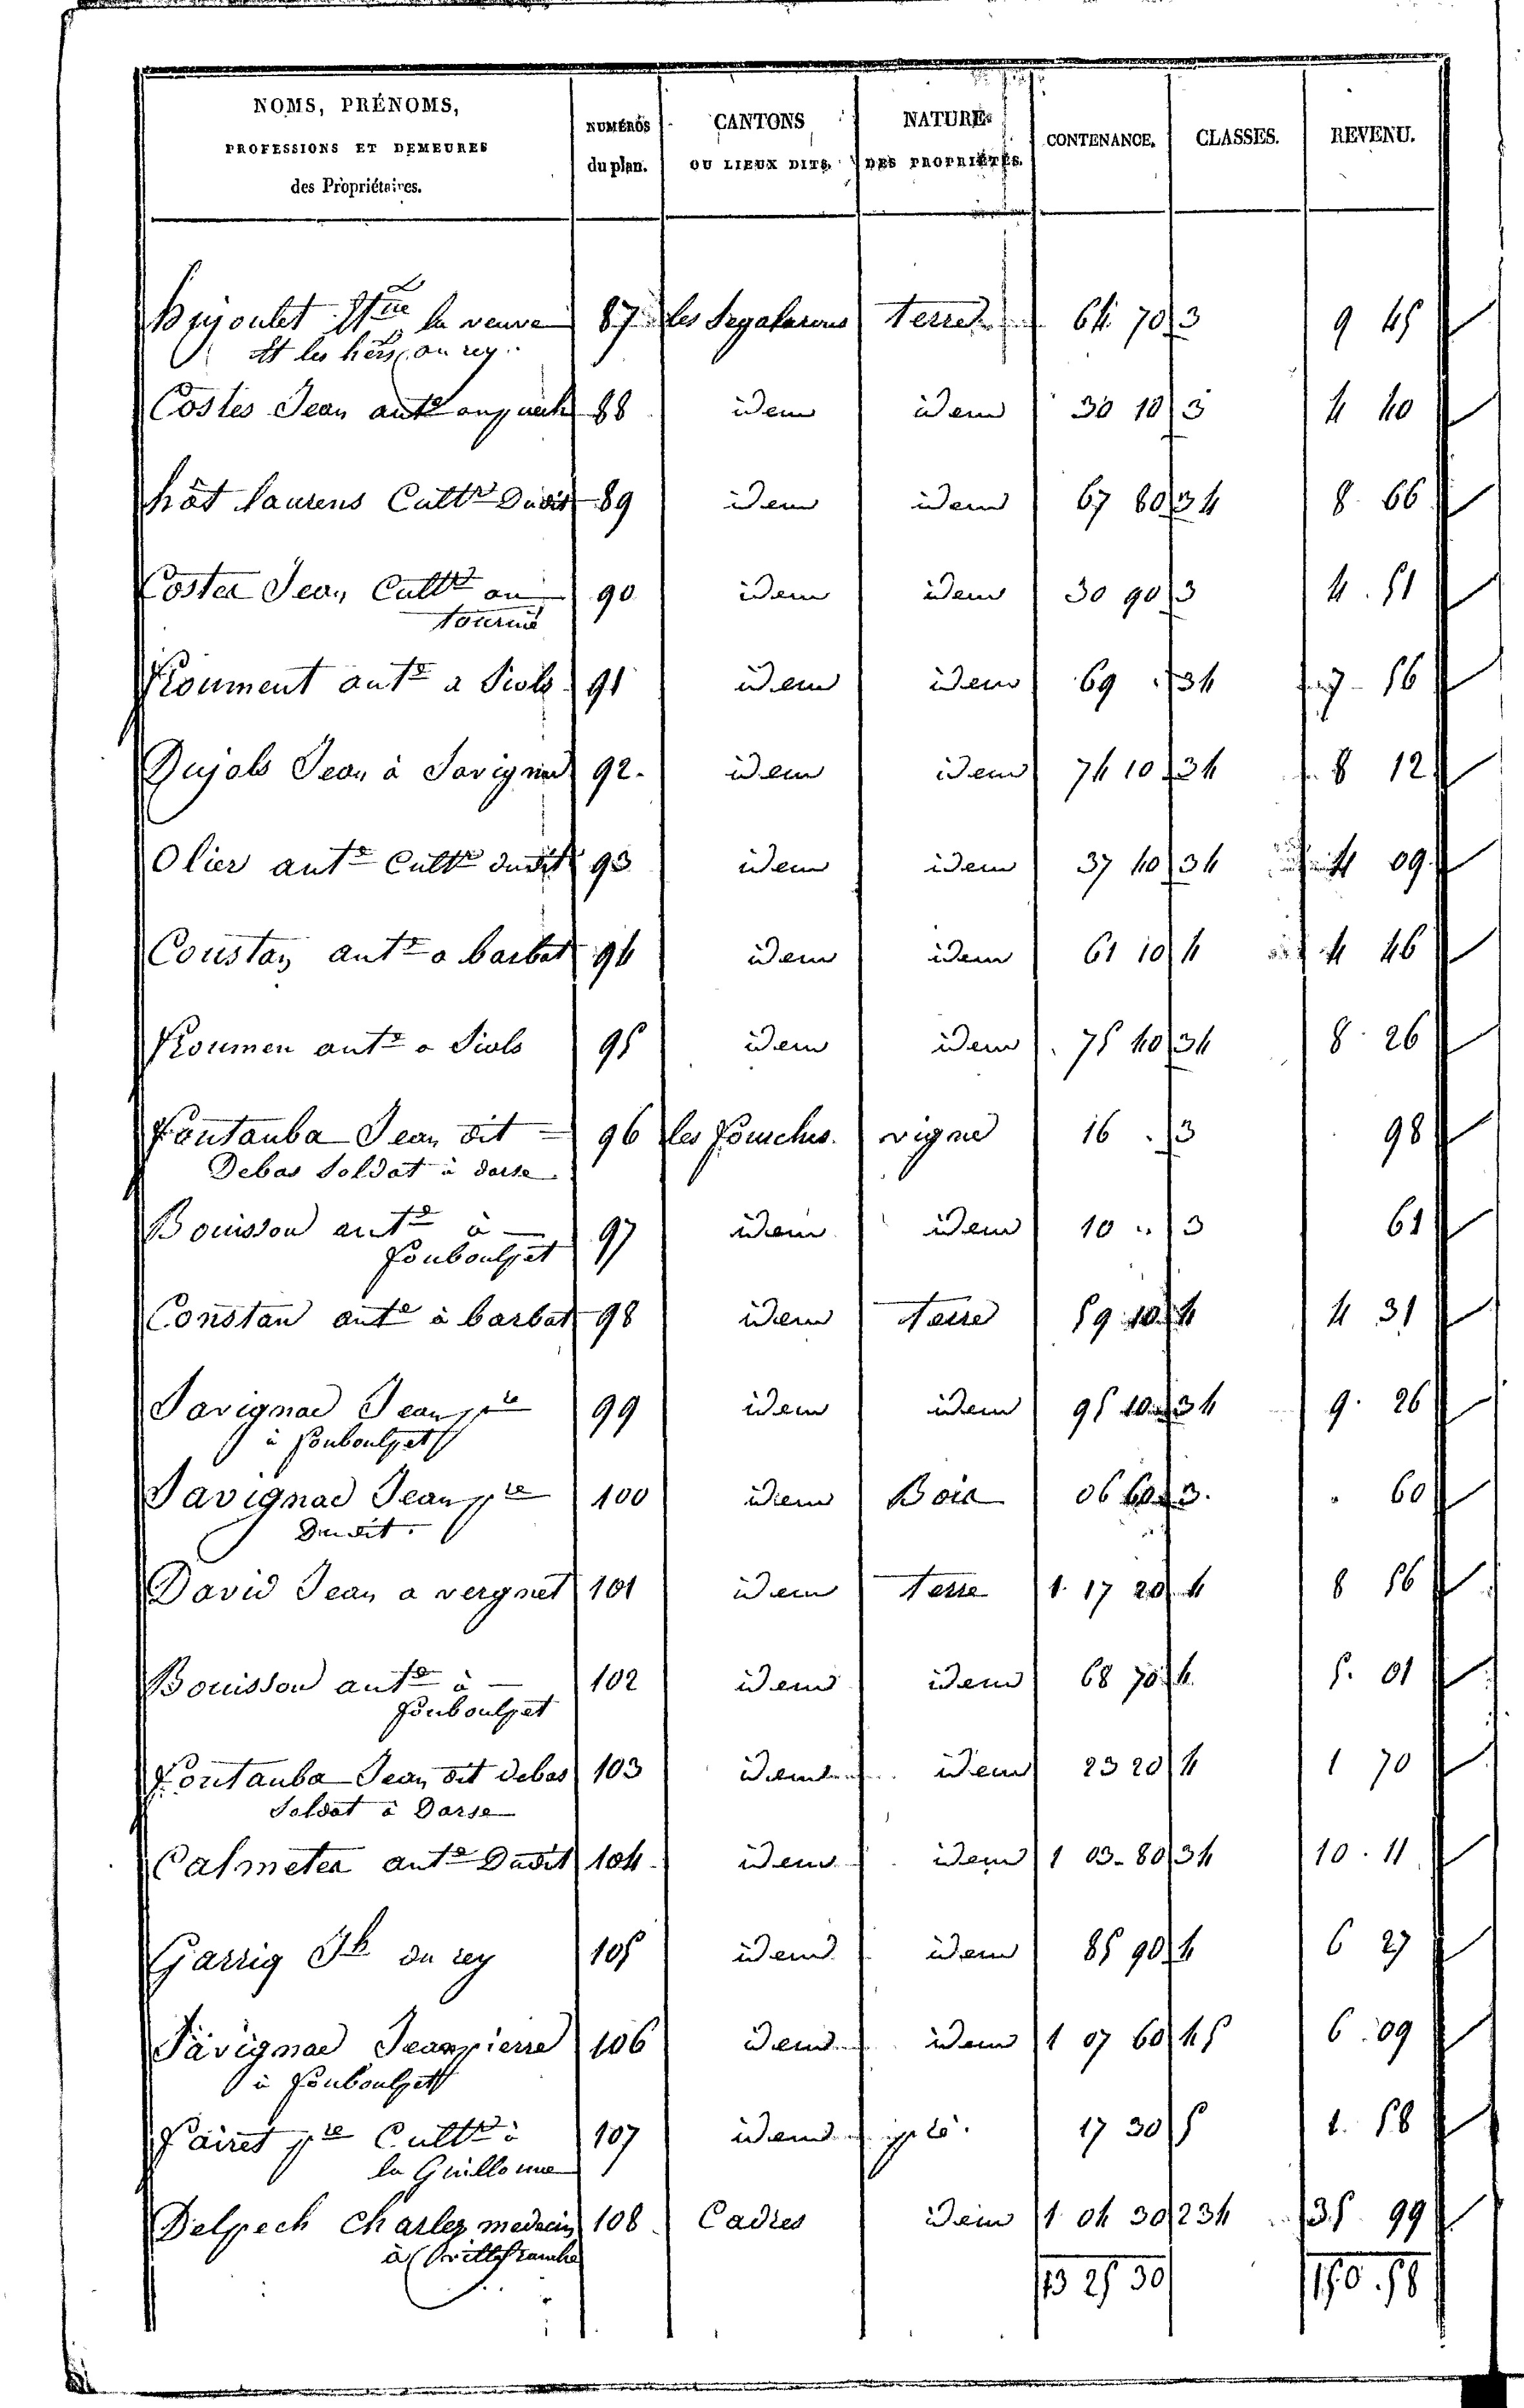 NOMS, PRÉNOMS, PROFESSIONS ET DEMEURES des Propriétaires. NUMÉROS du plan. CANTONS OU LIEUX DITS. NATURE DES PROPRIÉTÉS. CONTENANCE. CLASSES. REVENU.
la veuve 87 les terre 64 70 3 9 45
Et les au rey
Costes Jean ante 88 idem idem 30 10 3 4 40
Laurens Cultr Dudit 89 idem idem 67 80 34 8 66
Costes Jean Cultr au 90 idem idem 30 90 3 4 51
tournié
Roument ante a Siols 91 idem idem 69 34 7 56
Dujols Jean à Savignac 92 idem idem 74 10 34 8 12
Olier ante Cultr dudit 93 idem idem 37 40 34 4 09
Coustan ante a barbat 94 idem idem 61 10 4 4 46
Roumen ante a Siols 95 idem idem 75 40 34 8 26
Fontauba Jean dit 96 les Fourches vigne 16 3 98
Debas Soldat à darse
Bouisson ante à 97 idem idem 10 3 61
Fonboulpet
Constan ante à barbat 98 idem terre 59 10 4 4 31
Savignac Jean pre 99 idem idem 95 10 34 9 26
à Fonboulpet
Savignac Jean pre 100 idem Bois 06 60 3 60
Dudit
David Jean a vergnet 101 idem terre 1 17 20 4 8 56
Bouisson ante à 102 idem idem 68 70 4 5 01
Fonboulpet
Fontauba Jean dit debas 103 idem idem 23 20 4 1 70
Soldat à Darse
Calmetes ante Dudit 104 idem idem 1 03 80 34 10 11
Garrig Jh du rey 105 idem idem 85 90 4 6 27
Savignac Jeanpierre 106 idem idem 1 07 60 45 6 09
à Fonboulpet
Fairet pre Cultr à 107 idem pré 17 30 5 1 58
la Guillonne
Delpech Charles medecin 108 Cadres idem 1 04 30 234 35 99
à villefranche
13 25 30 150 58